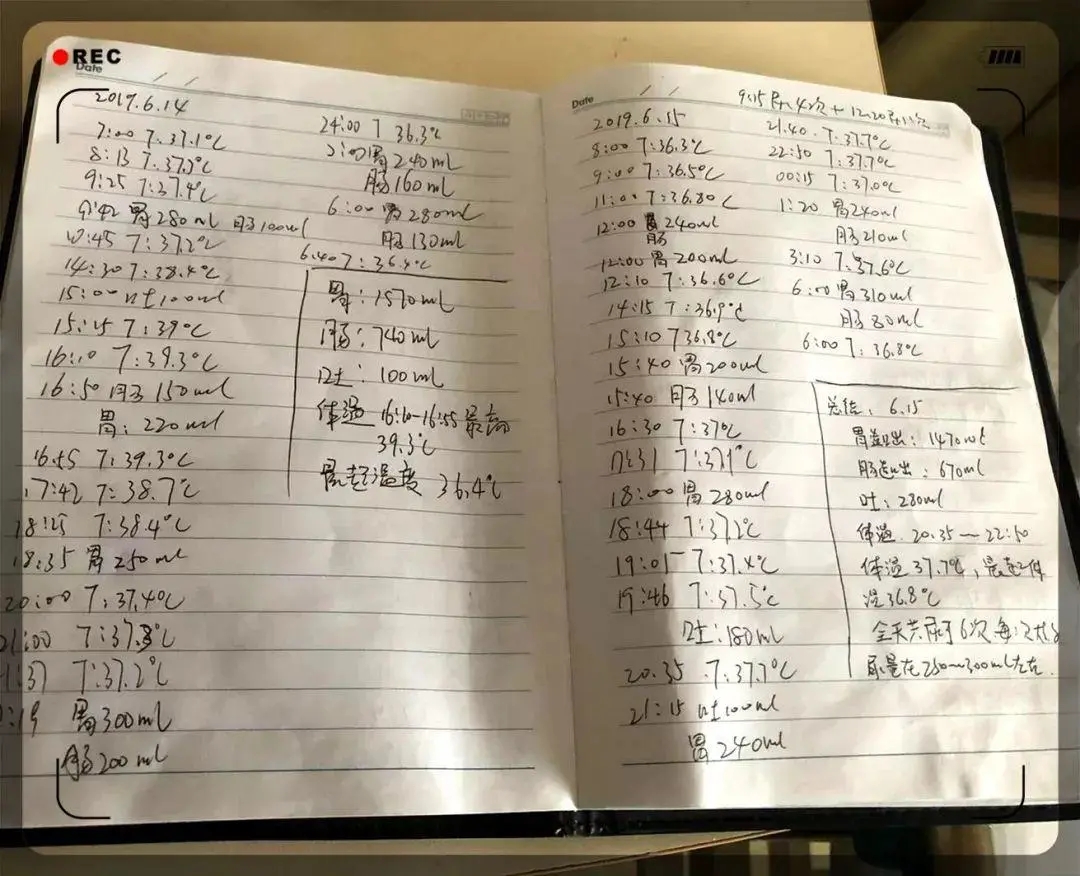 REC
Date
2019.6.14
7:00 T:37.1℃
8:13 T:37.2℃
9:25 T:37.4℃
9:42 胃280ml 肠100ml
10:45 T:37.2℃
14:30 T:38.4℃
15:00 吐100ml
15:25 T:39℃
16:10 T:39.3℃
16:50 肠150ml
胃:220ml
16:55 T:39.3℃
17:42 T:38.7℃
18:25 T:38.4℃
18:35 胃250ml
20:00 T:37.4℃
21:00 T:37.3℃
:37 T:37.2℃
:19 胃300ml
肠200ml
24:00 T 36.3℃
2:00胃240ml
肠160ml
6:00 胃280ml
肠130ml
6.40 T:36.4℃
胃:1570ml
肠:740ml
吐:100ml
体温 16:10-16:55 最高
39.3℃
最起温度 36.4℃
Date
9:15尿4次+12.20尿1次
2019.6.15
8:00 T:36.3℃
9:00 T:36.5℃
11:00 T:36.80℃
12:00 胃240ml
肠
12:00 胃200ml
12:10 T:36.6℃
14:15 T:36.9℃
15:10 T36.8℃
15:40 胃200ml
15:40 肠140ml
16:30 T:37℃
17:31 T:37.1℃
18:00 胃280ml
18:44 T:37.2℃
19:01 T:37.4℃
19:46 T:37.5℃
吐:180ml
20.35 T:37.7℃
21:15 吐100ml
胃240ml
21.40. T:37.7℃
22:50 T:37.7℃
00:15 T:37.0℃
1:20 胃240ml
肠210ml
3:10 T:37.6℃
6:00 胃310ml
肠80ml
6:00 T:36.8℃
总结:6.15
胃造口出:1470ml
肠造口出:670ml
吐:280ml
体温 20:35—22:50
体温37.7℃,最起体
温36.8℃
全天共尿了6次 每次
尿量在250~300ml左右.